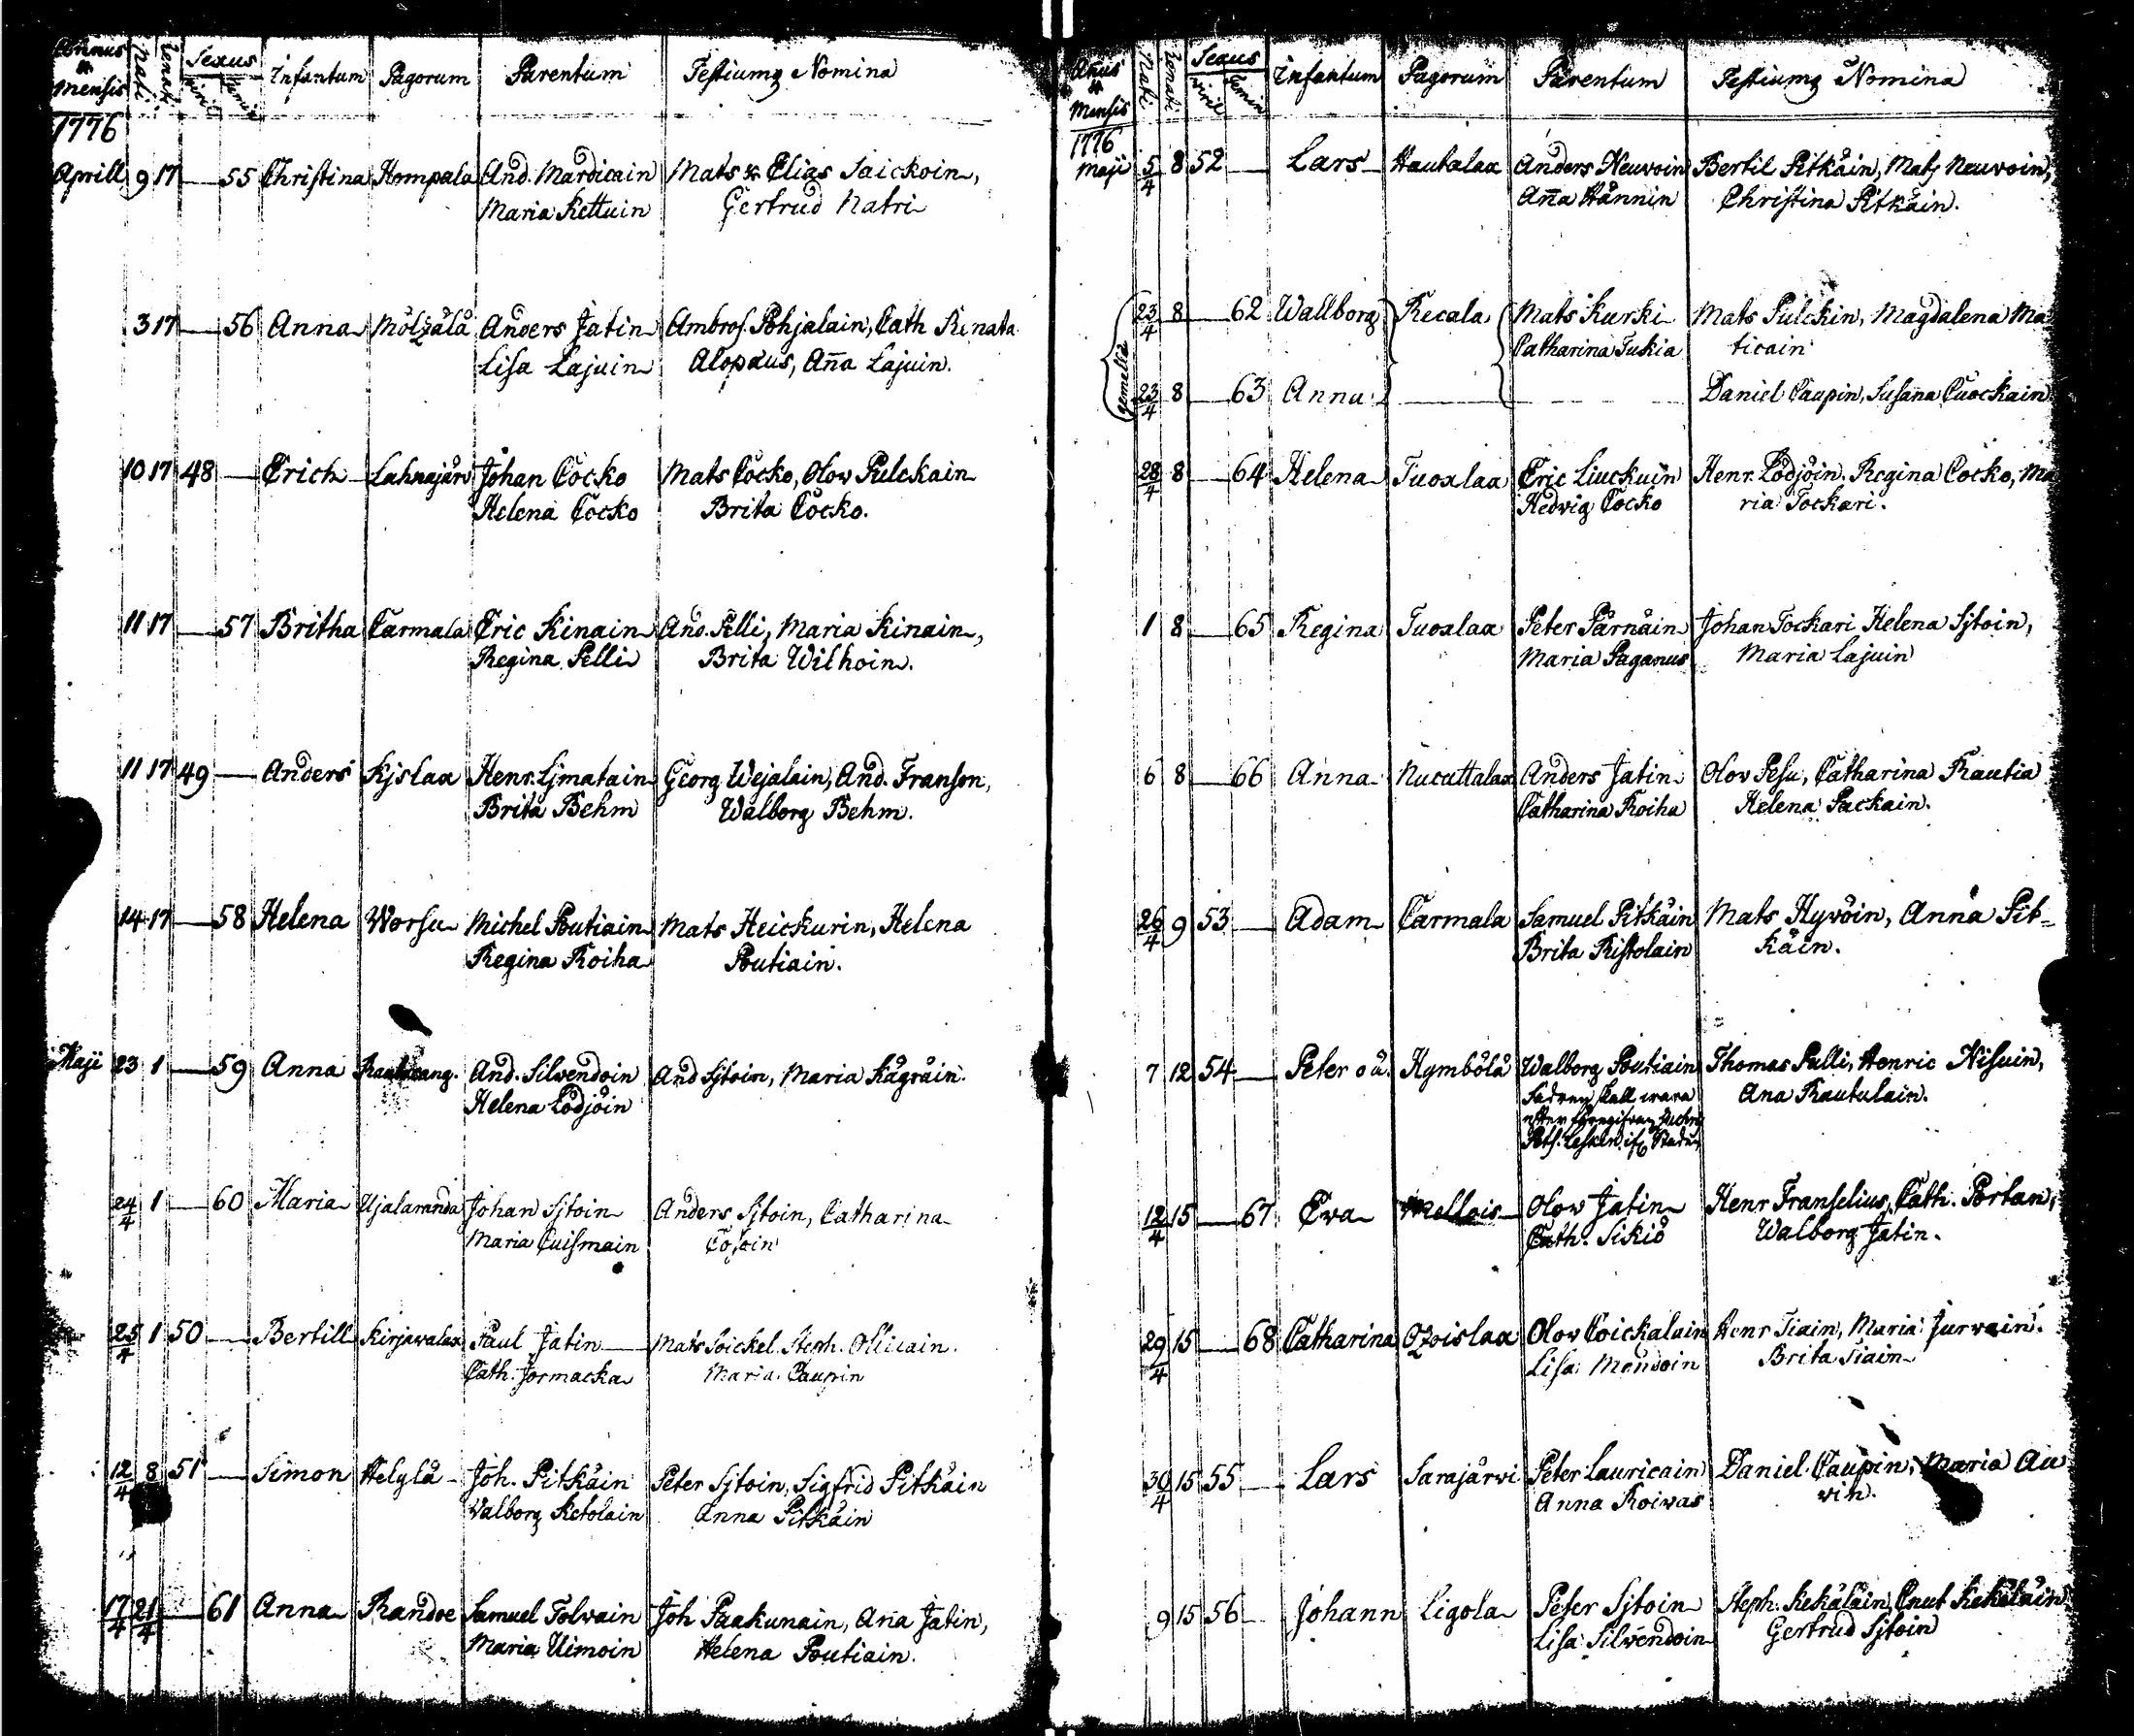 Annus & Mensis Nati Renati Sexus Infantum Pagorum Parentum Testiumq Nomina
viril femin
1776
Aprill 9 17 — 55 Christina Hompala And. Mardicain Mats & Elias Saickoin,
Maria Kettuin Gertrud Natri
3 17 — 56 Anna Anders Jatin Ambros. Pohjalain, Cath Renata
Lisa Lajuin Alopæus, Aña Lajuin.
10 17 48 — Erich Lahnajärv Johan Cocko Mats Cocko, Olov Pulckain
Helena Cocko Brita Cocko.
11 17 — 57 Britha Carmala Eric Kinain And. Pelli, Maria Kinain,
Regina Pelli Brita Wilhoin.
11 17 49 — Anders Kjslax Henr. Ljmatain Georg Wejalain, And. Franson,
Brita Behm Walborg Behm.
14 17 — 58 Helena Worsu Michel Poutiain Mats Heickurin, Helena
Regina Roiha Poutiain.
Maji 23 1 — 59 Anna And. Silvendoin And Sjtoin, Maria Kägräin.
Helena Lodjöin
24/4 1 — 60 Maria Ujalaranda Johan Sjtoin Anders Sjtoin, Catharina
Maria Cuismain
25/4 1 50 — Bertill Kirjavalax Paul Jatin Mats Soickel. Steph. Ollicain.
Cath. Jormacka Maria Caupin
12/4 8 51 — Simon Helylä Joh. Pitkäin Peter Sjtoin, Sigfrid Pitkäin
Walborg Ketolain Anna Pitkäin
17/4 21/4 — 61 Anna Randoe Samuel Tolvain Joh Paakunain, Ana Jatin,
Maria Uimoin Helena Poutiain.
Añus & Mensis Nati Renati Sexus Infantum Pagorum Parentum Testiumq Nomina
viril femin
1776
Maji 5/4 8 52 — Lars Hautalax Anders Neuvoin Bertil Pitkäin, Mats Neuvoin,
Aña Hännin Christina Pitkäin.
gemellæ
23/4 8 — 62 Wallborg Recala Mats Kurki Mats Pulckin, Magdalena Ma
Catharina Tukia ticain
23/4 8 — 63 Anna — Daniel Caupin, Susana Cuockain
28/4 8 — 64 Helena Tuoxlax Eric Liuckuin Henr. Lodjöin. Regina Cocko, Ma
Hedvig Cocko ria Tockari.
1 8 — 65 Regina Tuoxlax Peter Pärnäin Johan Tockari Helena Sjtoin,
Maria Paganus Maria Lajuin
6 8 — 66 Anna Nucuttalax Anders Jatin Olov Pesu, Catharina Rautia
Catharina Roiha Helena Packain.
26/4 9 53 — Adam Carmala Samuel Pitkäin Mats Hyvöin, Anna Pit=
Brita Ristolain käin.
7 12 54 — Peter o ä. Hymbölä Walborg Poutiain Thomas Pulli, Henric Hisuin,
Fadren skall wara Ana Rautulain.
12/4 15 — 67 Eva Mellois Olov Jatin Henr Franselius, Cath. Portan,
Cath. Sikiö Walborg Jatin.
29/4 15 — 68 Catharina Olov Coickalain Henr Tiain, Maria Jurvain.
Lisa Mondoin Brita Tiain
30/4 15 55 — Lars Sarajärvi Peter Lauricain Daniel Caupin, Maria Au
Anna Roivas vin.
9 15 56 — Johann Ligola Peter Sjtoin Steph. Kekäläin, Cnut Kekäläin
Lisa Silvendoin Gertrud Sjtoin